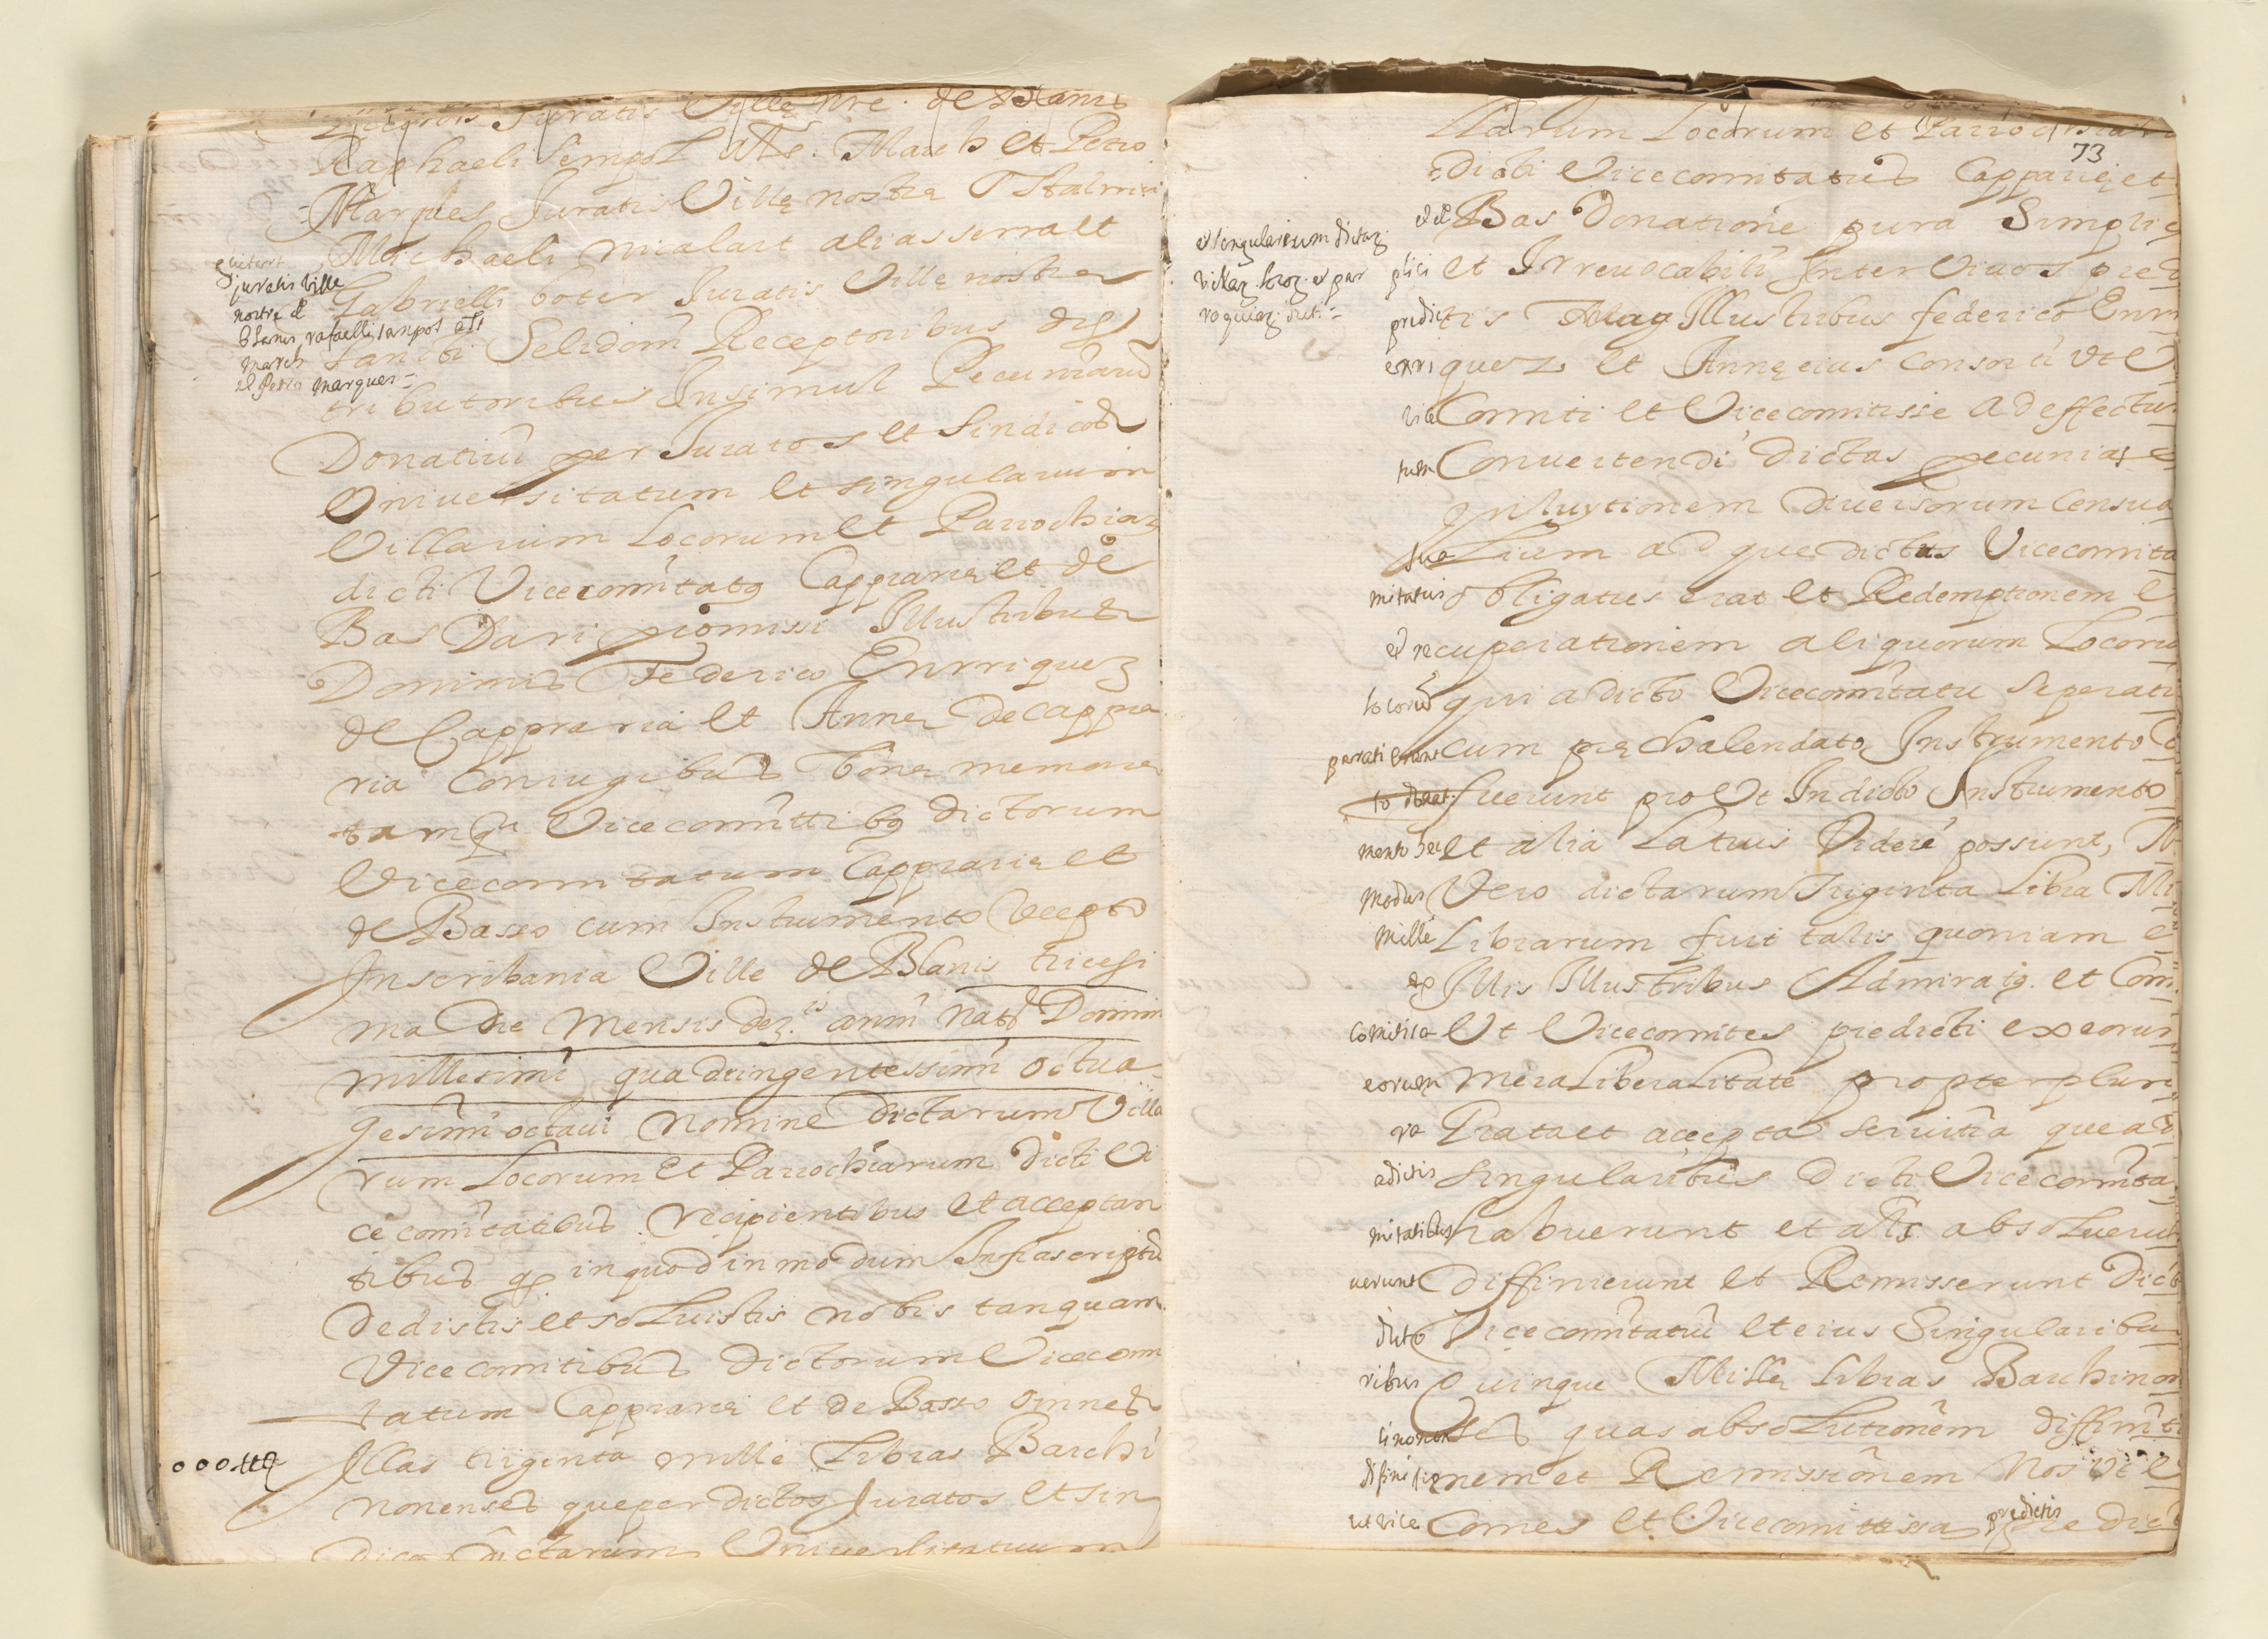 Juratis Ville nre. de Blanis
Raphaeli Sempol als. March et Petro
Marques Juratis Ville nostrę
Michaeli nicalart alias serralt
Gabrielli boter Juratis Ville nostre
Sancti Selidom Receptoribus dis
tributoribus Insimul Pecuniarũ
Donatiuũ per Juratos et Sindicos
Vniuersitatum et singularium
Villarum Locorum et Parrochiaꝝ
dicti Vicecomitatꝰ Capprarię et de
Bas Dari promissi Illustribus
Dominis Federico Enrriquez
de Cappraria et Anne de cappra
ria coniugibus bone memorie
tamq̃ Vicecomittibꝰ dictorum
Vicecomitatum Capprarię et
de Basso cum Instrumento recepto
Inscribania Ville de Blanis tricesi
ma die Mensis dez.is anni Natt Domini
millesimi quadringentessimi octua
gesimi octaui nomine dictarum Villa
rum Locorum et Parrochiarum dicti Vi
cecomitatibus recipientibus et acceptan
tibus inquod inmodum Infrascriptũ
dedistis et soluistis nobis tanquam
Vicecomitibus dictorum Vicecomi
tatum Capprarię et de Basso omnes
Illas triginta mille Libras Barchi
nonenses que per dictos Juratos et sin
dicos dictarum Vniuersitatuum
juratis ville
nostre d
blanes rafaelli sanpol als
march
et Petro marques =
000 ttq
73
llarum Locorum et Parrochiaru
dicti Vicecomitatus Capprarię et
et d Bas Donatione pura Simplic
plici et Irreuocabili Inter Viuos pred
predictis Mag Illustribus federico Enrr
enriquez et Annę eius consorti Vt V
vice Comiti et Vicecomitisse ad effectu
tum Conuertendi dictas pecunias
Inluytionem diuersorum Censua
sua Lium ad que dictus Vicecomita
mitatus obligatus erat et Redemptionem e
et recuperationem aliquorum Locoru
locorũ qui a dicto Vicecomitatu seperati
parati erant cum pręchalendato Instrumento
fuerunt pro Vt In dicto Instrumento
mento hec et alia Latius Videre possunt,
modus Vero dictarum triginta Libra Mi
Mille Librarum fuit talis quoniam e
ex Illis Illustribus Admiratꝰ. et Com
comitisa Vt Vicecomites predicti exeorum
eorum mera Liberalitate propter plura
ra Grata et accepta seruitia que a d
adictis Singularibus dicti Vicecomita
mitatibus habuerunt et als absoluerut
uerunt diffinierunt et Remisserunt dict
dicto Vicecomitatui et eius Singularibu
ribus Quinque Mille Libras Barchinon
cinonenses quas absolutionem diffiniti
difinitionem et Remissionem Nos Vt
ut vice Comes et Vicecomittissa predictis predict
et singularium dictaꝝ
villaꝝ locoꝝ et par
roquiaꝝ dicti =